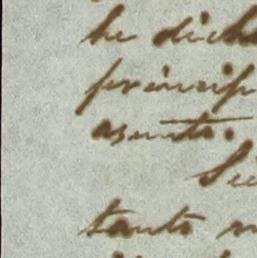 he dicho
princip
asunto.
Si
tanto